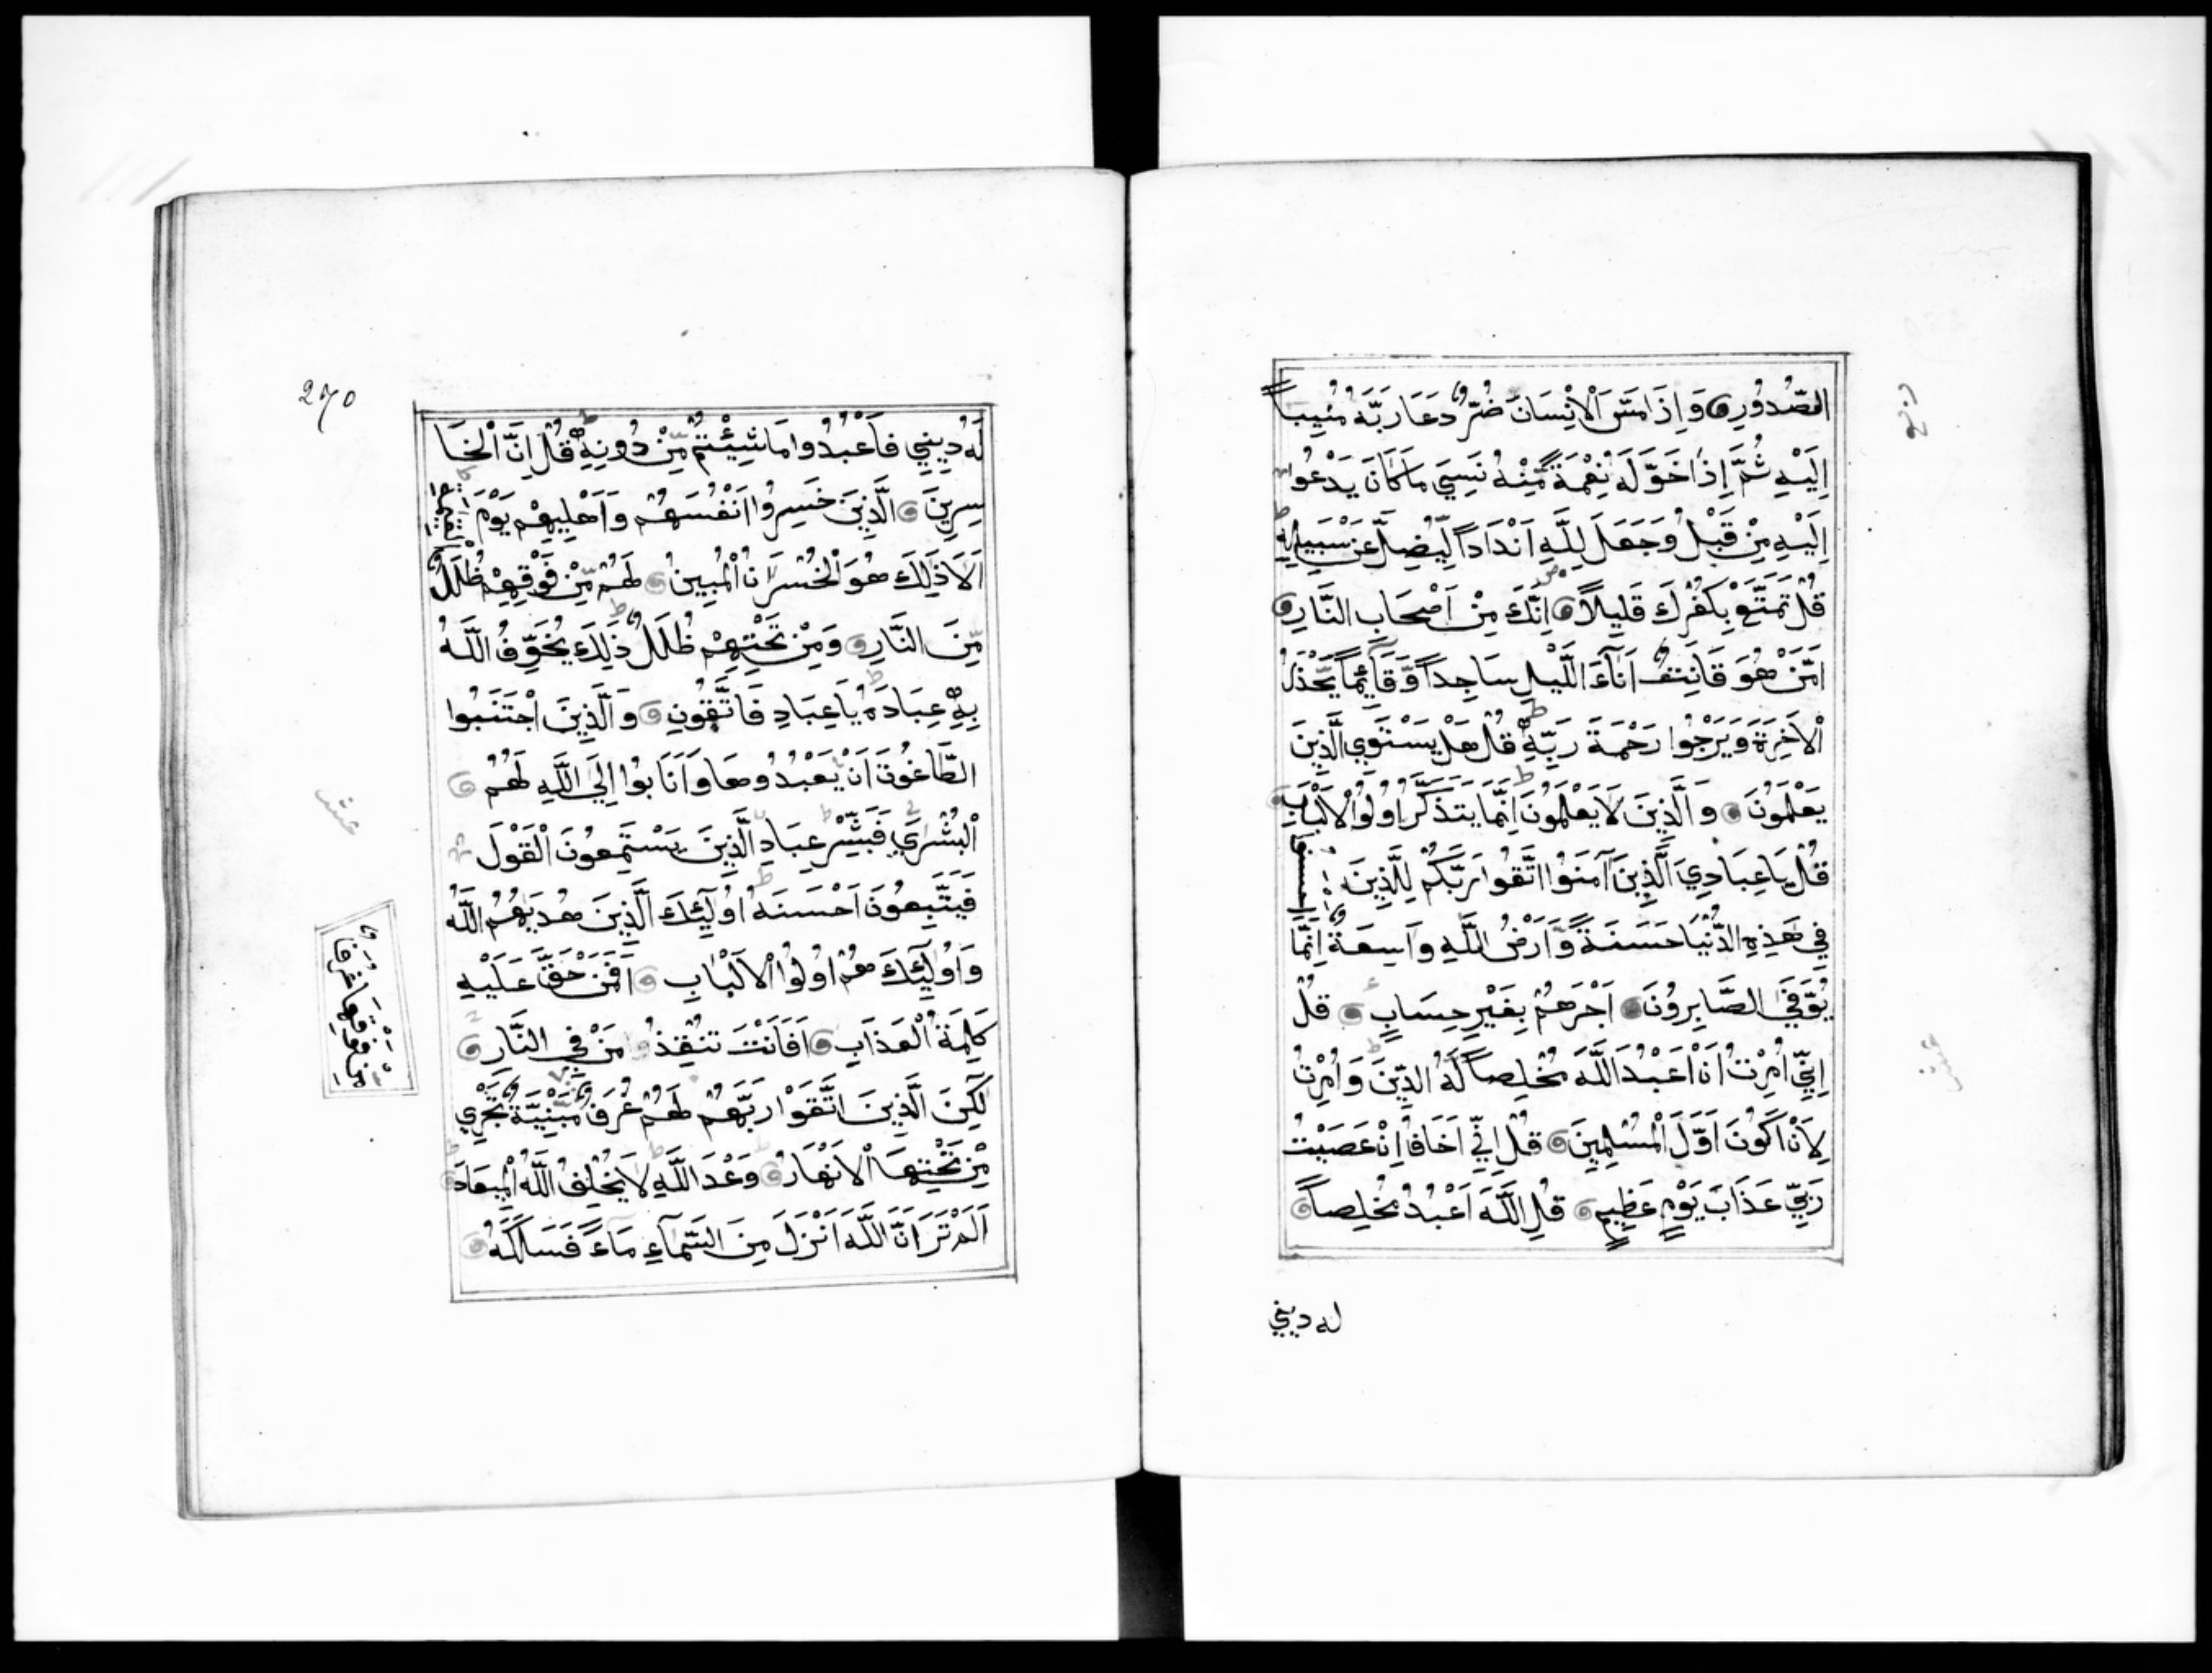 الصُّدُورِ وَاِذَا مَسَّ الْاِنْسَانَ ضُرٌّ دَعَا رَبَّهُ مُنِيباً
اِلَيْهِ ثُمَّ اِذَا خَوَّلَهُ نِعْمَةً مِّنْهُ نَسِيَ مَا كَانَ يَدْعُوا
اِلَيْهِ مِنْ قَبْلُ وَجَعَلَ لِلَّهِ اَنْدَاداً لِّيُضِلَّ عَنْ سَبِيلِهِ
قُلْ تَمَتَّعْ بِكُفْرِكَ قَلِيلاً اِنَّكَ مِنْ اَصْحَابِ النَّارِ
اَمَّنْ هُوَ قَانِتٌ اَنَآءَ اللَّيْلِ سَاجِداً وَّقَآئِماً يَّحْذَرُ
الْاَخِرَةَ وَيَرْجُوا رَحْمَةَ رَبِّهِ قُلْ هَلْ يَسْتَوِي الَّذِينَ
يَعْلَمُونَ وَالَّذِينَ لَا يَعْلَمُونَ اِنَّمَا يَتَذَكَّرُ اُولُوا الْاَلْبَابِ
قُلْ يَاعِبَادِيَ الَّذِينَ آمَنُوا اتَّقُوا رَبَّكُمْ لِلَّذِينَ اَحْسَنُوا
فِي هَذِهِ الدُّنْيَا حَسَنَةً وَّاَرْضُ اللَّهِ وَاسِعَةٌ اِنَّمَا
يُوَفَّى الصَّابِرُونَ اَجْرَهُمْ بِغَيْرِ حِسَابٍ قُلْ
اِنِّي اُمِرْتُ اَنْ اَعْبُدَ اللَّهَ مُخْلِصاً لَهُ الدِّينَ وَاُمِرْتُ
لِاَنْ اَكُونَ اَوَّلَ الْمُسْلِمِينَ قُلْ اِنِّي اَخَافُ اِنْ عَصَيْتُ
رَبِّي عَذَابَ يَوْمٍ عَظِيمٍ قُلِ اللَّهَ اَعْبُدُ مُخْلِصاً
له ديني
ربع
عشر
270
لَهُ دِينِي فَاعْبُدُوا مَا شِئْتُمْ مِّنْ دُونِهِ قُلْ اِنَّ الْخَا
سِرِينَ الَّذِينَ خَسِرُوا اَنْفُسَهُمْ وَاَهْلِيهِمْ يَوْمَ الْقِيمَةِ
اَلَا ذَلِكَ هُوَ الْخُسْرَانُ الْمُبِينُ لَهُمْ مِّنْ فَوْقِهِمْ ظُلَلٌ
مِّنَ النَّارِ وَمِنْ تَحْتِهِمْ ظُلَلٌ ذَلِكَ يُخَوِّفُ اللَّهُ
بِهِ عِبَادَهُ يَاعِبَادِ فَاتَّقُونِ وَالَّذِينَ اجْتَنَبُوا
الطَّاغُوتَ اَنْ يَعْبُدُوهَا وَاَنَابُوا اِلَى اللَّهِ لَهُمُ
الْبُشْرَي فَبَشِّرْ عِبَادِ الَّذِينَ يَسْتَمِعُونَ الْقَوْلَ
فَيَتَّبِعُونَ اَحْسَنَهُ اُولَئِكَ الَّذِينَ هَدَيهُمُ اللَّهُ
وَاُولَئِكَ هُمْ اُولُوا الْاَلْبَابِ اَفَمَنْ حَقَّ عَلَيْهِ
كَلِمَةُ الْعَذَابِ اَفَاَنْتَ تُنْقِذُ مَنْ فِي النَّارِ
لَكِنِ الَّذِينَ اتَّقَوْا رَبَّهُمْ لَهُمْ غُرَفٌ مَّبْنِيَّةٌ تَجْرِي
مِنْ تَحْتِهَا الْاَنْهَارُ وَعْدَ اللَّهِ لَا يُخْلِفُ اللَّهُ الْمِيعَادَ
اَلَمْ تَرَ اَنَّ اللَّهَ اَنْزَلَ مِنَ السَّمَآءِ مَآءً فَسَلَكَهُ
عشر
مِنْ فَوْقِهَا غُرَفٌ